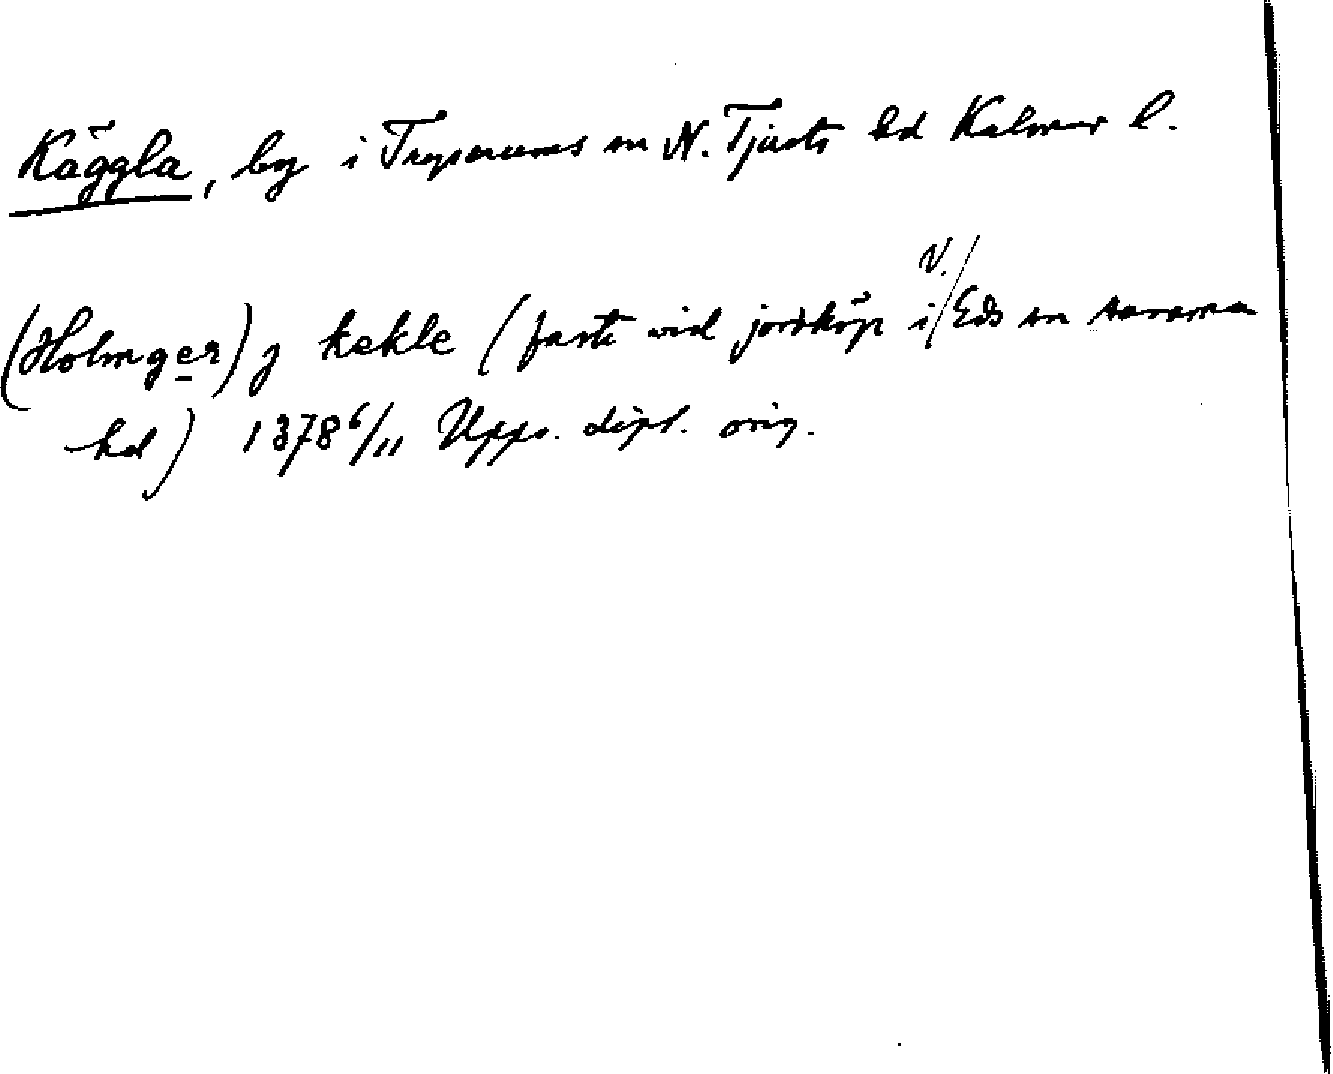 Käggla, by i Tryserums sn N. Tjusts hd Kalmar l.
(Holmger) j kekle (faste vid jordköp i V. Eds sn samma
hd) 1378 6/11 Upps. dipl. orig.